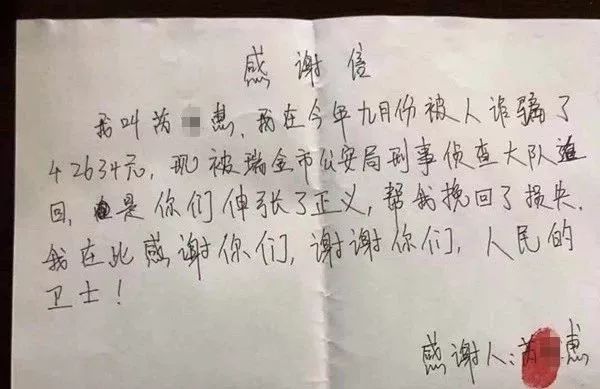 感谢信
我叫芮 惠，我在今年九月份被人诈骗了
42634元，现被瑞金市公安局刑事侦查大队追
回，是你们伸张了正义，帮我挽回了损失。
我在此感谢你们，谢谢你们，人民的
卫士！
感谢人：芮 惠